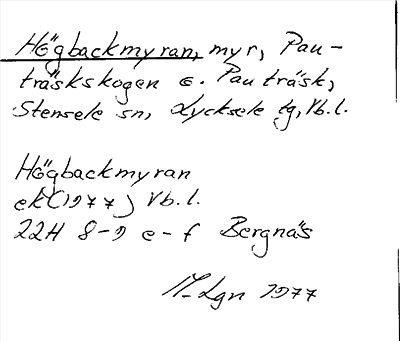 Högbackmyran, myr, Pau-
träskskogen o. Pauträsk,
Stensele sn, Lycksele tg, Vb.l.
Högbackmyran
ek (1977) Vb.l.
22H 8-9 e-f Bergnäs
M-Lgn 1977